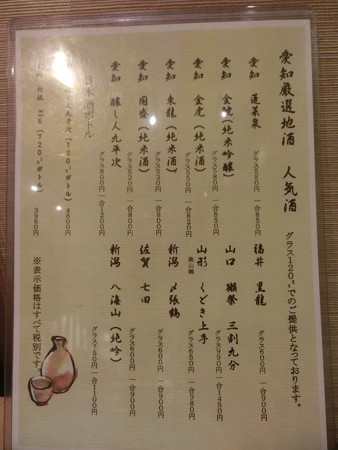 愛知厳選地酒 人気酒
グラス120㎖でのご提供となっております。
愛知 蓬莱泉
グラス550円 一合850円
愛知 金虎(純米吟醸)
グラス550円 一合820円
愛知 金虎(純米酒)
愛知 東龍(純米酒)
グラス550円 一合850円
愛知 国盛(純米酒)
グラス530円 一合800円
愛知 醸し人九平次
グラス800円 一合1200円
福井 黒龍
グラス600円 一合900円
山口 獺祭 三割九分
グラス990円 一合1480円
山形 くどき上手
奥山錦
新潟 〆張鶴
グラス600円 一合900円
佐賀 七田
グラス600円 一合900円
新潟 八海山(純吟)
グラス750円 一合1100円
日本酒ボトル
醸し人九平次(720㎖ボトル)
4800円
(720㎖ボトル)
5980円
※表示価格はすべて税別です。